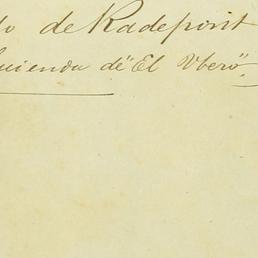 do de Radepont
cienda de "El Ubero"